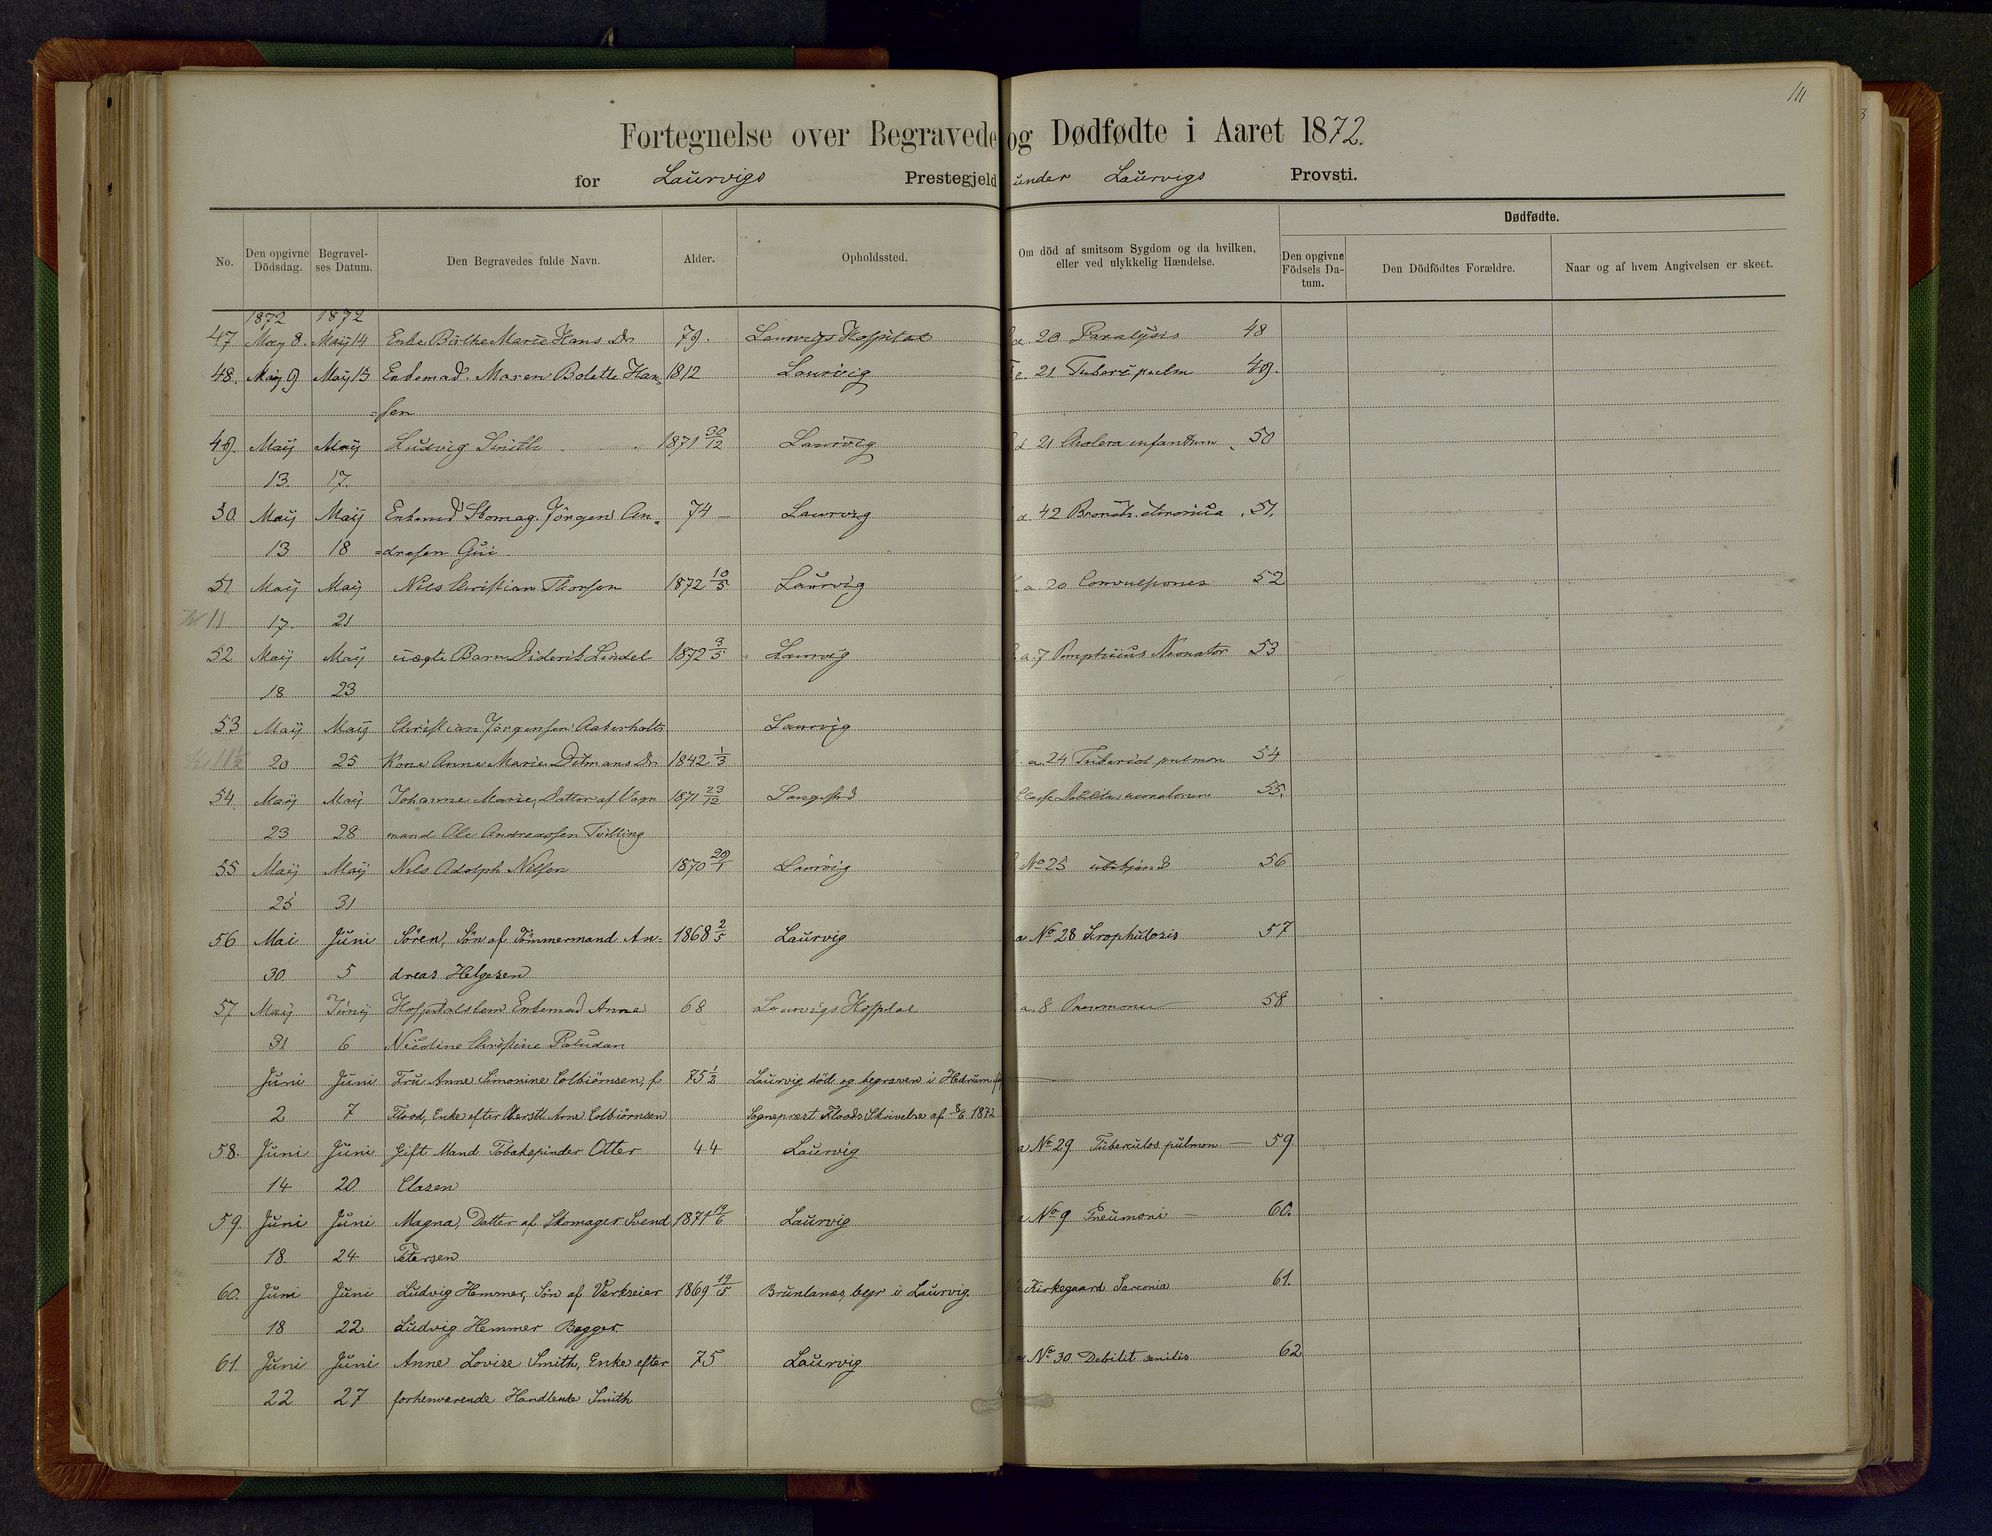 111
Fortegnelse over Begravede og Dødfødte i Aaret 1872.
for Laurvigs Prestegjeld under Laurvigs Provsti.
No. Den opgivne Dödsdag. Begravelses Datum. Den Begravedes fulde Navn. Alder. Opholdssted. Om död af smitsom Sygdom og da hvilken, eller ved ulykkelig Hændelse. Dødfødte. Den opgivne Födsels Datum. Den Dödfödtes Forældre. Naar og af hvem Angivelsen er skeet.
1872 1872
47 May 8. Maij 14 Enke Birthe Marie Hans Dr 79. Laurvigs Hospital a. 20 Paralysis 48
48. Maij 9 Maij 15 Enkemad. Maren Bolette Han= 1812 Laurvig 21 Tuberc pulm 49.
=sen
49. Maij Maij Ludvig Smith 1871 30/12 Laurvig 21 Cholera infantum 50
13. 17.
50. Maij Maij Enkemd Skomag. Jörgen An= 74 Laurvig a 42 Bronch. chronica 51.
13 18 =dresen Gui
51. Maij Maij Nils Christian Thorsen 1872 10/5 Laurvig a. 20 Convulsiones 52
11 17. 21
52 Maij Maij uægte Barn Diderik Lindel 1872 3/5 Laurvig a. 7 Pemphicus Neonator 53
18 23
53 Maij Maij Christian Jörgensen Aakerholts Laurvig
11½ 20 25 Kone Anne Marie Ditmans Dr 1842 1/3 a. 24 Tubercul pulmon 54
54. Maij Maij Johanne Marie, Datter af Vogn 1871 23/12 Langestrd Debilitas neonatorum 55.
23 28 mand Ole Andreassen Tvilling
55 Maij Maij Nils Adolph Nilsen 1870 29/1 Laurvig No 25 ubekjend 56
25 31
56 Mai Juni Sören, Sön af Tömmermand An= 1868 2/5 Laurvig a No 28 Scrophulosis 57
30 5 dreas Helgesen
57 Maij Junij Hospitalslem Enkemad Anne 68 Laurvigs Hospital a. 8 Pneumonie 58
31 6 Nicoline Christine Paludan
Juni Juni Fru Anne Simonine Colbiörnsen, f. 75½ Laurvig, död og begraven i Hedrum
2 7 Flood, Enke efter Oberstl. Arne Colbiörnsen Sogneprest Floods Skrivelse af 8/6 1872
58. Juni Juni Gift Mand Tobakspinder Otter 44 Laurvig a No 29 Tuberculos pulmon 59.
14 20 Clasen
59. Juni Juni Magna, Datter af Skomager Svend 1871 19/6 Laurvig a No 9 Pneumoni 60.
18 24 Petersen
60. Juni Juni Ludvig Hemmer, Sön af Værkseier 1869 19/5 Brunlanes, begr i Laurvig Kirkegaard Sarconia 61.
18 22 Ludvig Hemmer Bøgger
61. Juni Juni Anne Lovise Smith, Enke efter 75 Laurvig a No 30 Debilit senilis 62
22 27 forhenværende Handlende Smith